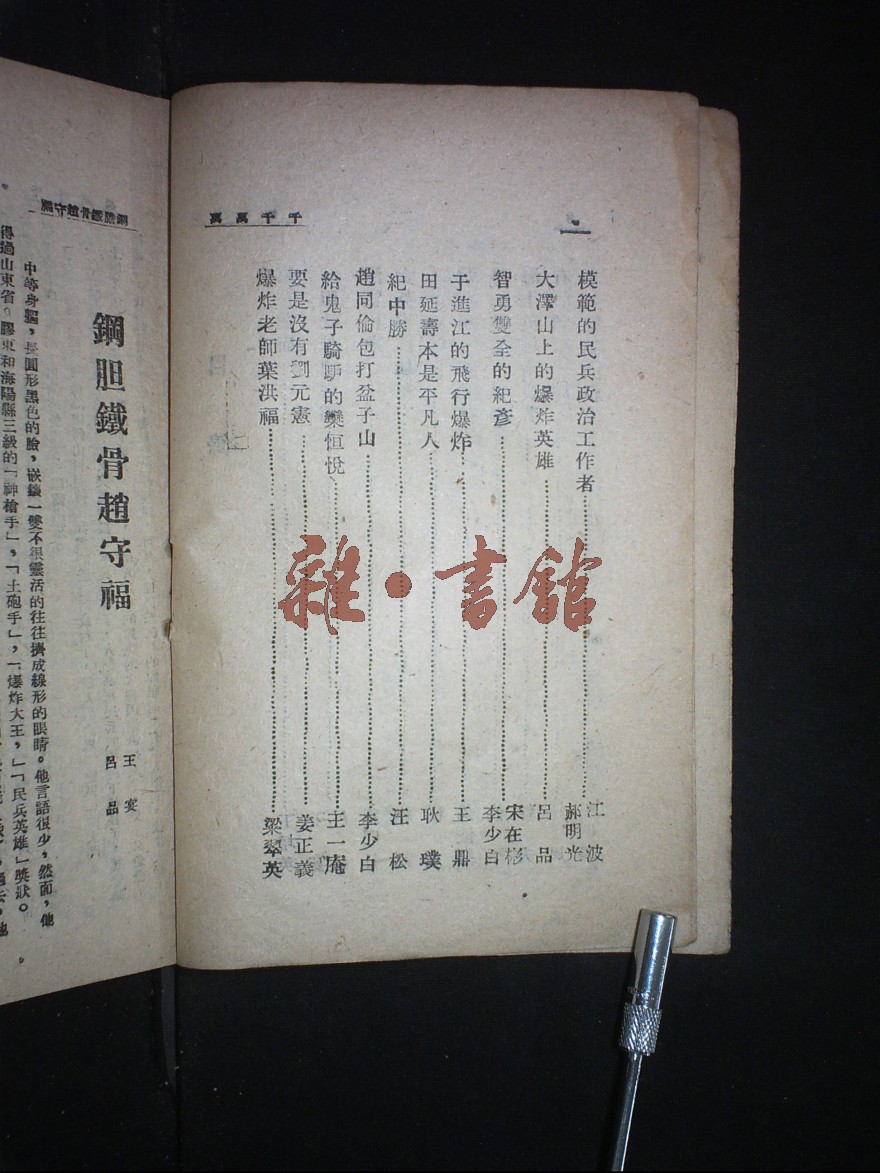 千千萬萬
模範的民兵政治工作者 江波 郝明光
大澤山上的爆炸英雄 呂品
智勇雙全的紀彥 宋在彬 李少白
于進江的飛行爆炸 王鼎
田延壽本是平凡人 耿璞
紀中勝 汪松
趙同倫包打盆子山 李少白
給鬼子騎馿的欒恒悅 王一庵
要是沒有劉元憲 姜正義
爆炸老師葉洪福 梁翠英
雜·書館
鋼胆鐵骨趙守福
鋼胆鐵骨趙守福
王安
呂品
中等身軀，長圓形黑色的臉，嵌鑲一雙不很靈活的往往擠成線形的眼睛。他言語很少，然面，他
得過山東省。膠東和海陽縣三級的「神槍手」，「土砲手」，「爆炸大王，」「民兵英雄」獎狀。